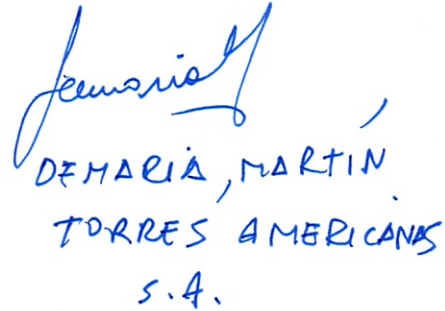 DEMARIA, MARTÍN
TORRES AMERICANAS
S.A.